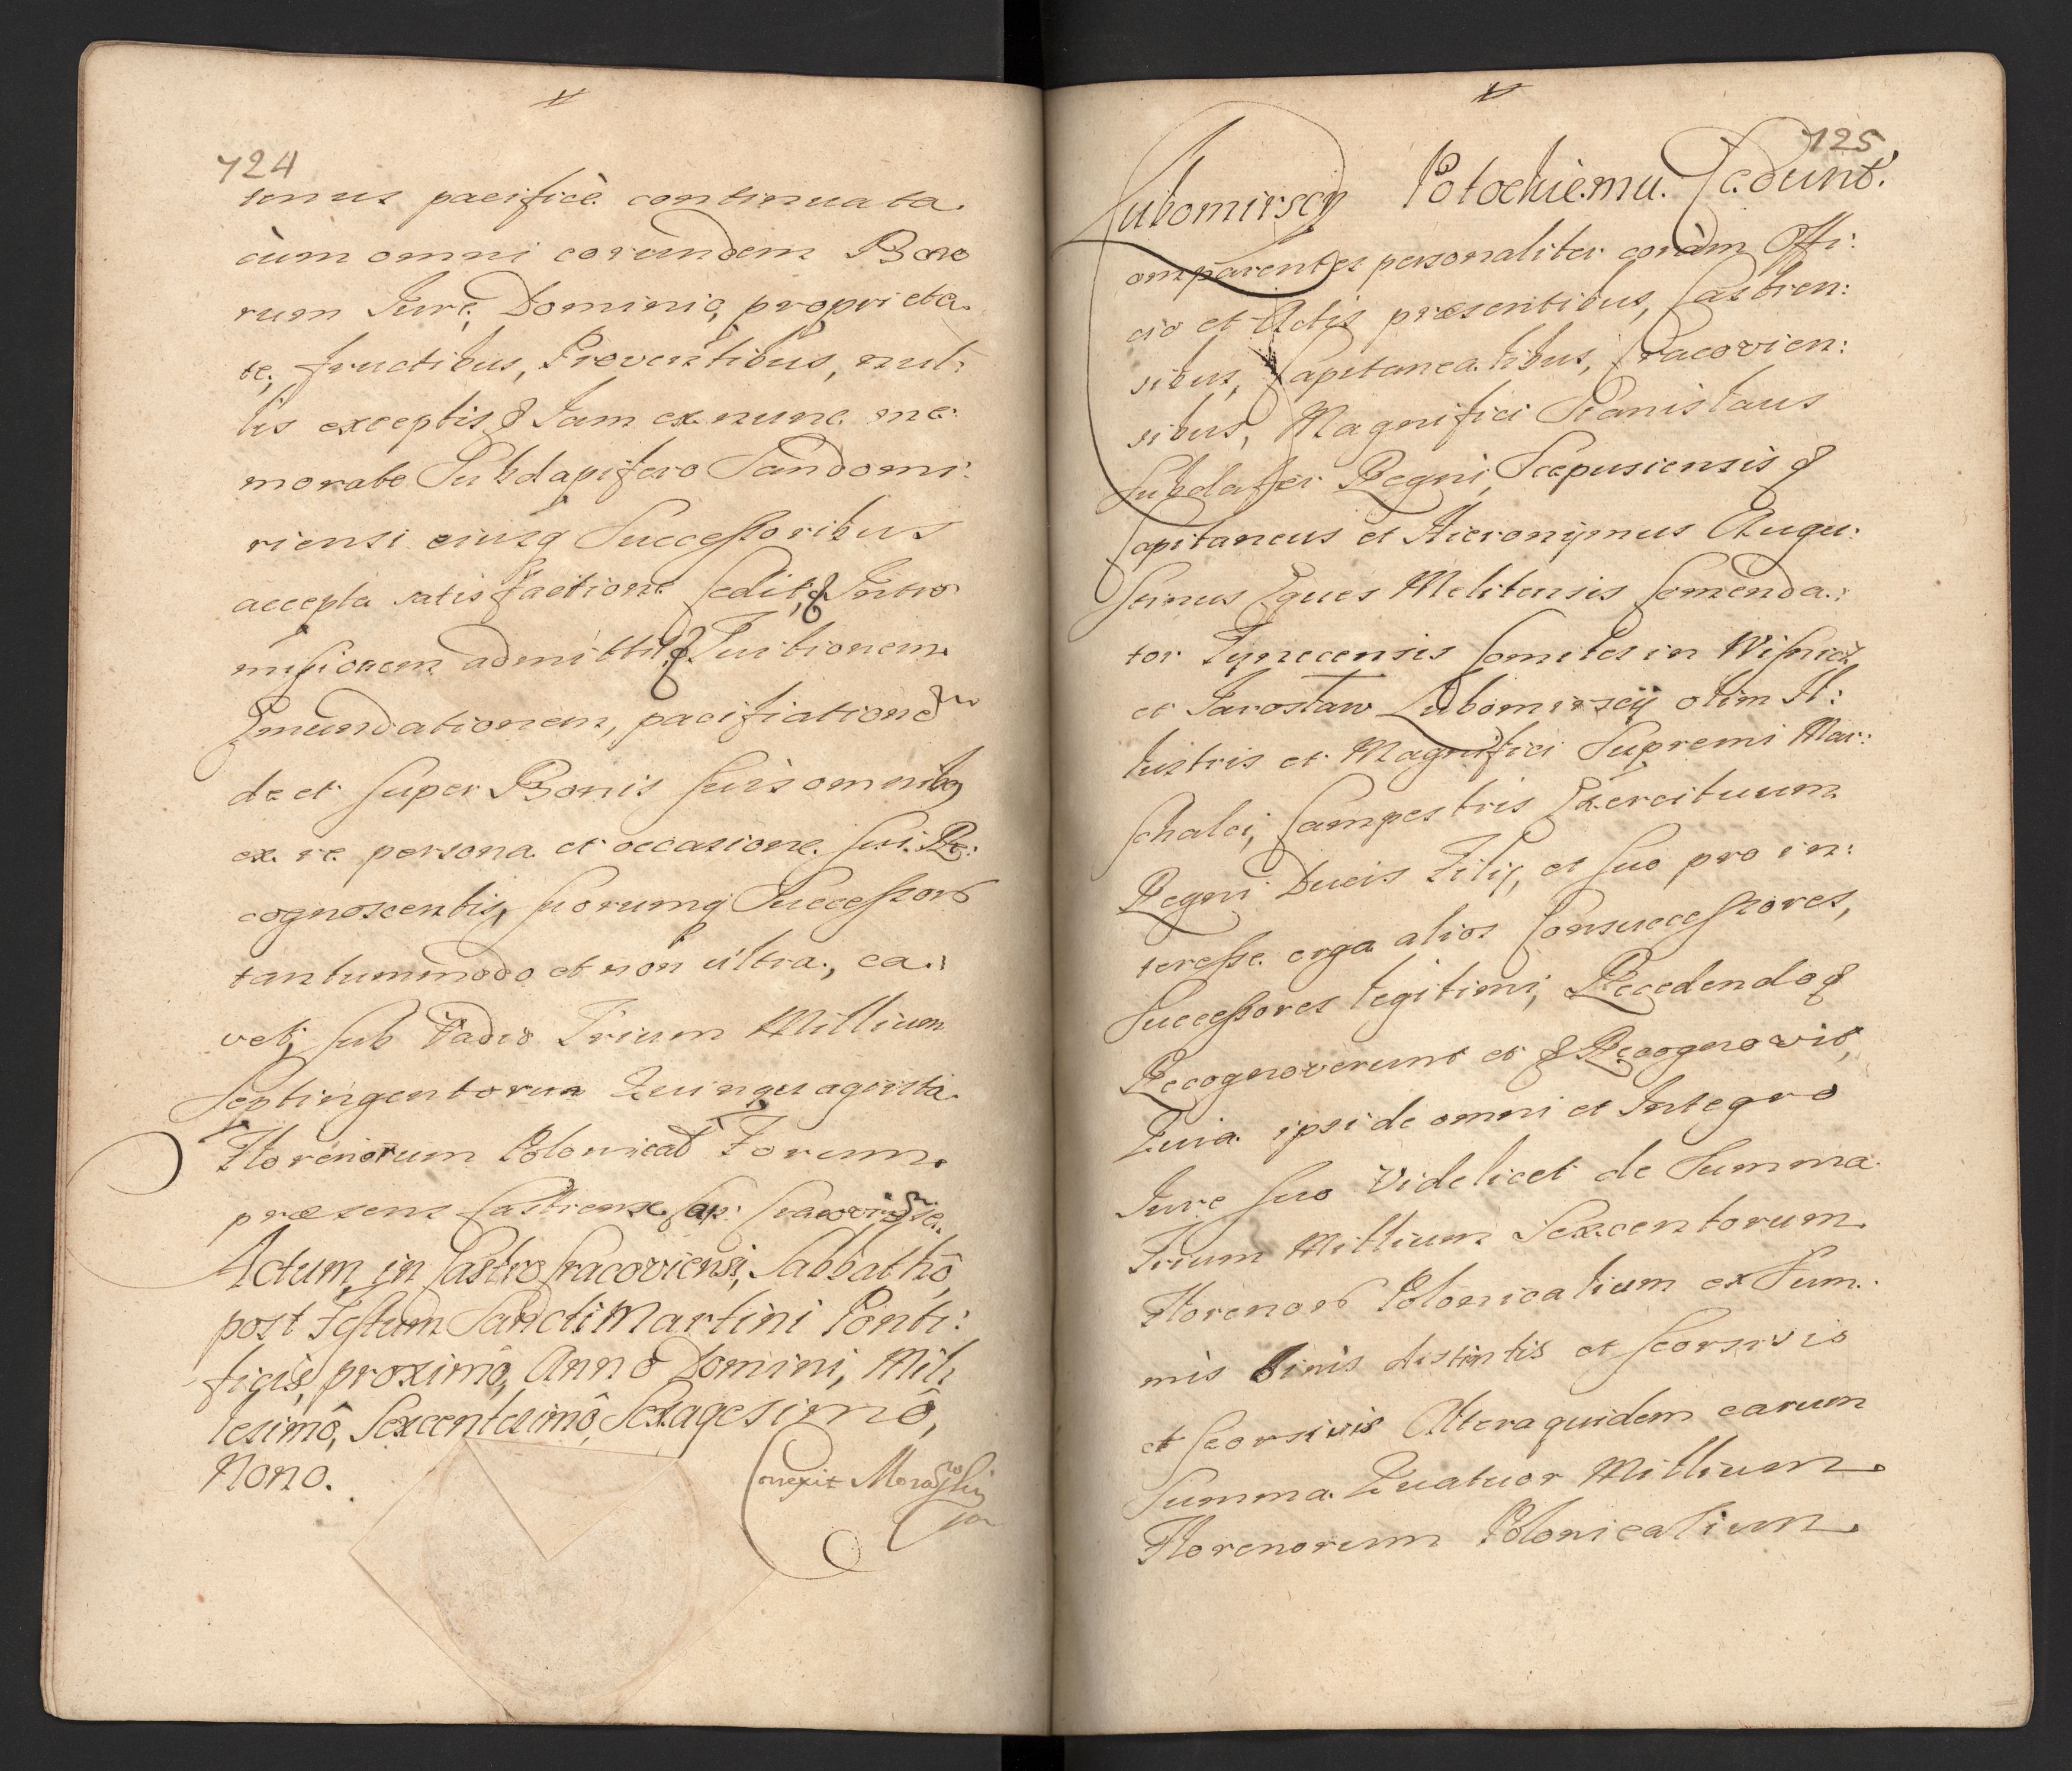 724
tenus pacificè continuata
cùm omni eorundem Bono
rum Iure, Dominio, proprieta
te, fructibus, Proventibus, nul:
lis exceptis & Iam ex nunc me:
morato Subdapifero Sandomi:
riensi eiusq Successoribus
accepta satisfactione Cedit, & Intro
missionem admittit & Tuitionem
Emundationem, pacifiationem
de et super Bonis suis omnibq
ex re persona et occasione sui Re:
cognoscentis, suorumq Successorũ
tantummodo et non ultra, ca:
vet, sub Vadio Trium Millium
Septingentorum Quinquaginta
Florenorum Polonical Forum
præsens Castrense Cap: Cracoviense.
Actum in Castro Cracoviensi, Sabbathô
post Festum Sancti Martini Ponti:
ficis, proximô, Anno Domini, Mil
lesimô, Sexcentesimô, Sexagesimô,
Nono.
Correxit
725
Lubomirscy Potockiemu Cedunt.
omparentes personaliter coràm Offi:
cio et Actis præsentibus, Castren:
sibus, Capitanealibus, Cracovien:
sibus, Magnifici Stanislaus
Subdafer Regni, Scepusiensis &
Capitaneus et Hieronÿmus Augu:
stinus Eques Melitensis Comenda:
tor Tynecensis Comites in Wisnicz
et Jarosław Lubomirscÿ olim Il:
lustris et Magnifici Supremi Mar:
schalci, Campestris Exercituum
Regni Ducis Filÿ, et suo pro in:
teresse erga alios Consuccessores,
Successores legitimi, Recedendo &
Recognoverunt et & Recognovit,
Quia ipsi de omni et Integro
Iure suo Videlicet de Summa
Trium Millium Sexcentorum
Florenorũ Polonicalium ex Sum:
mis binis distintis et seorsivis
et seorsivis Altera quidem earum
Summa Quatuor Millium
Florenorum Polonicalium